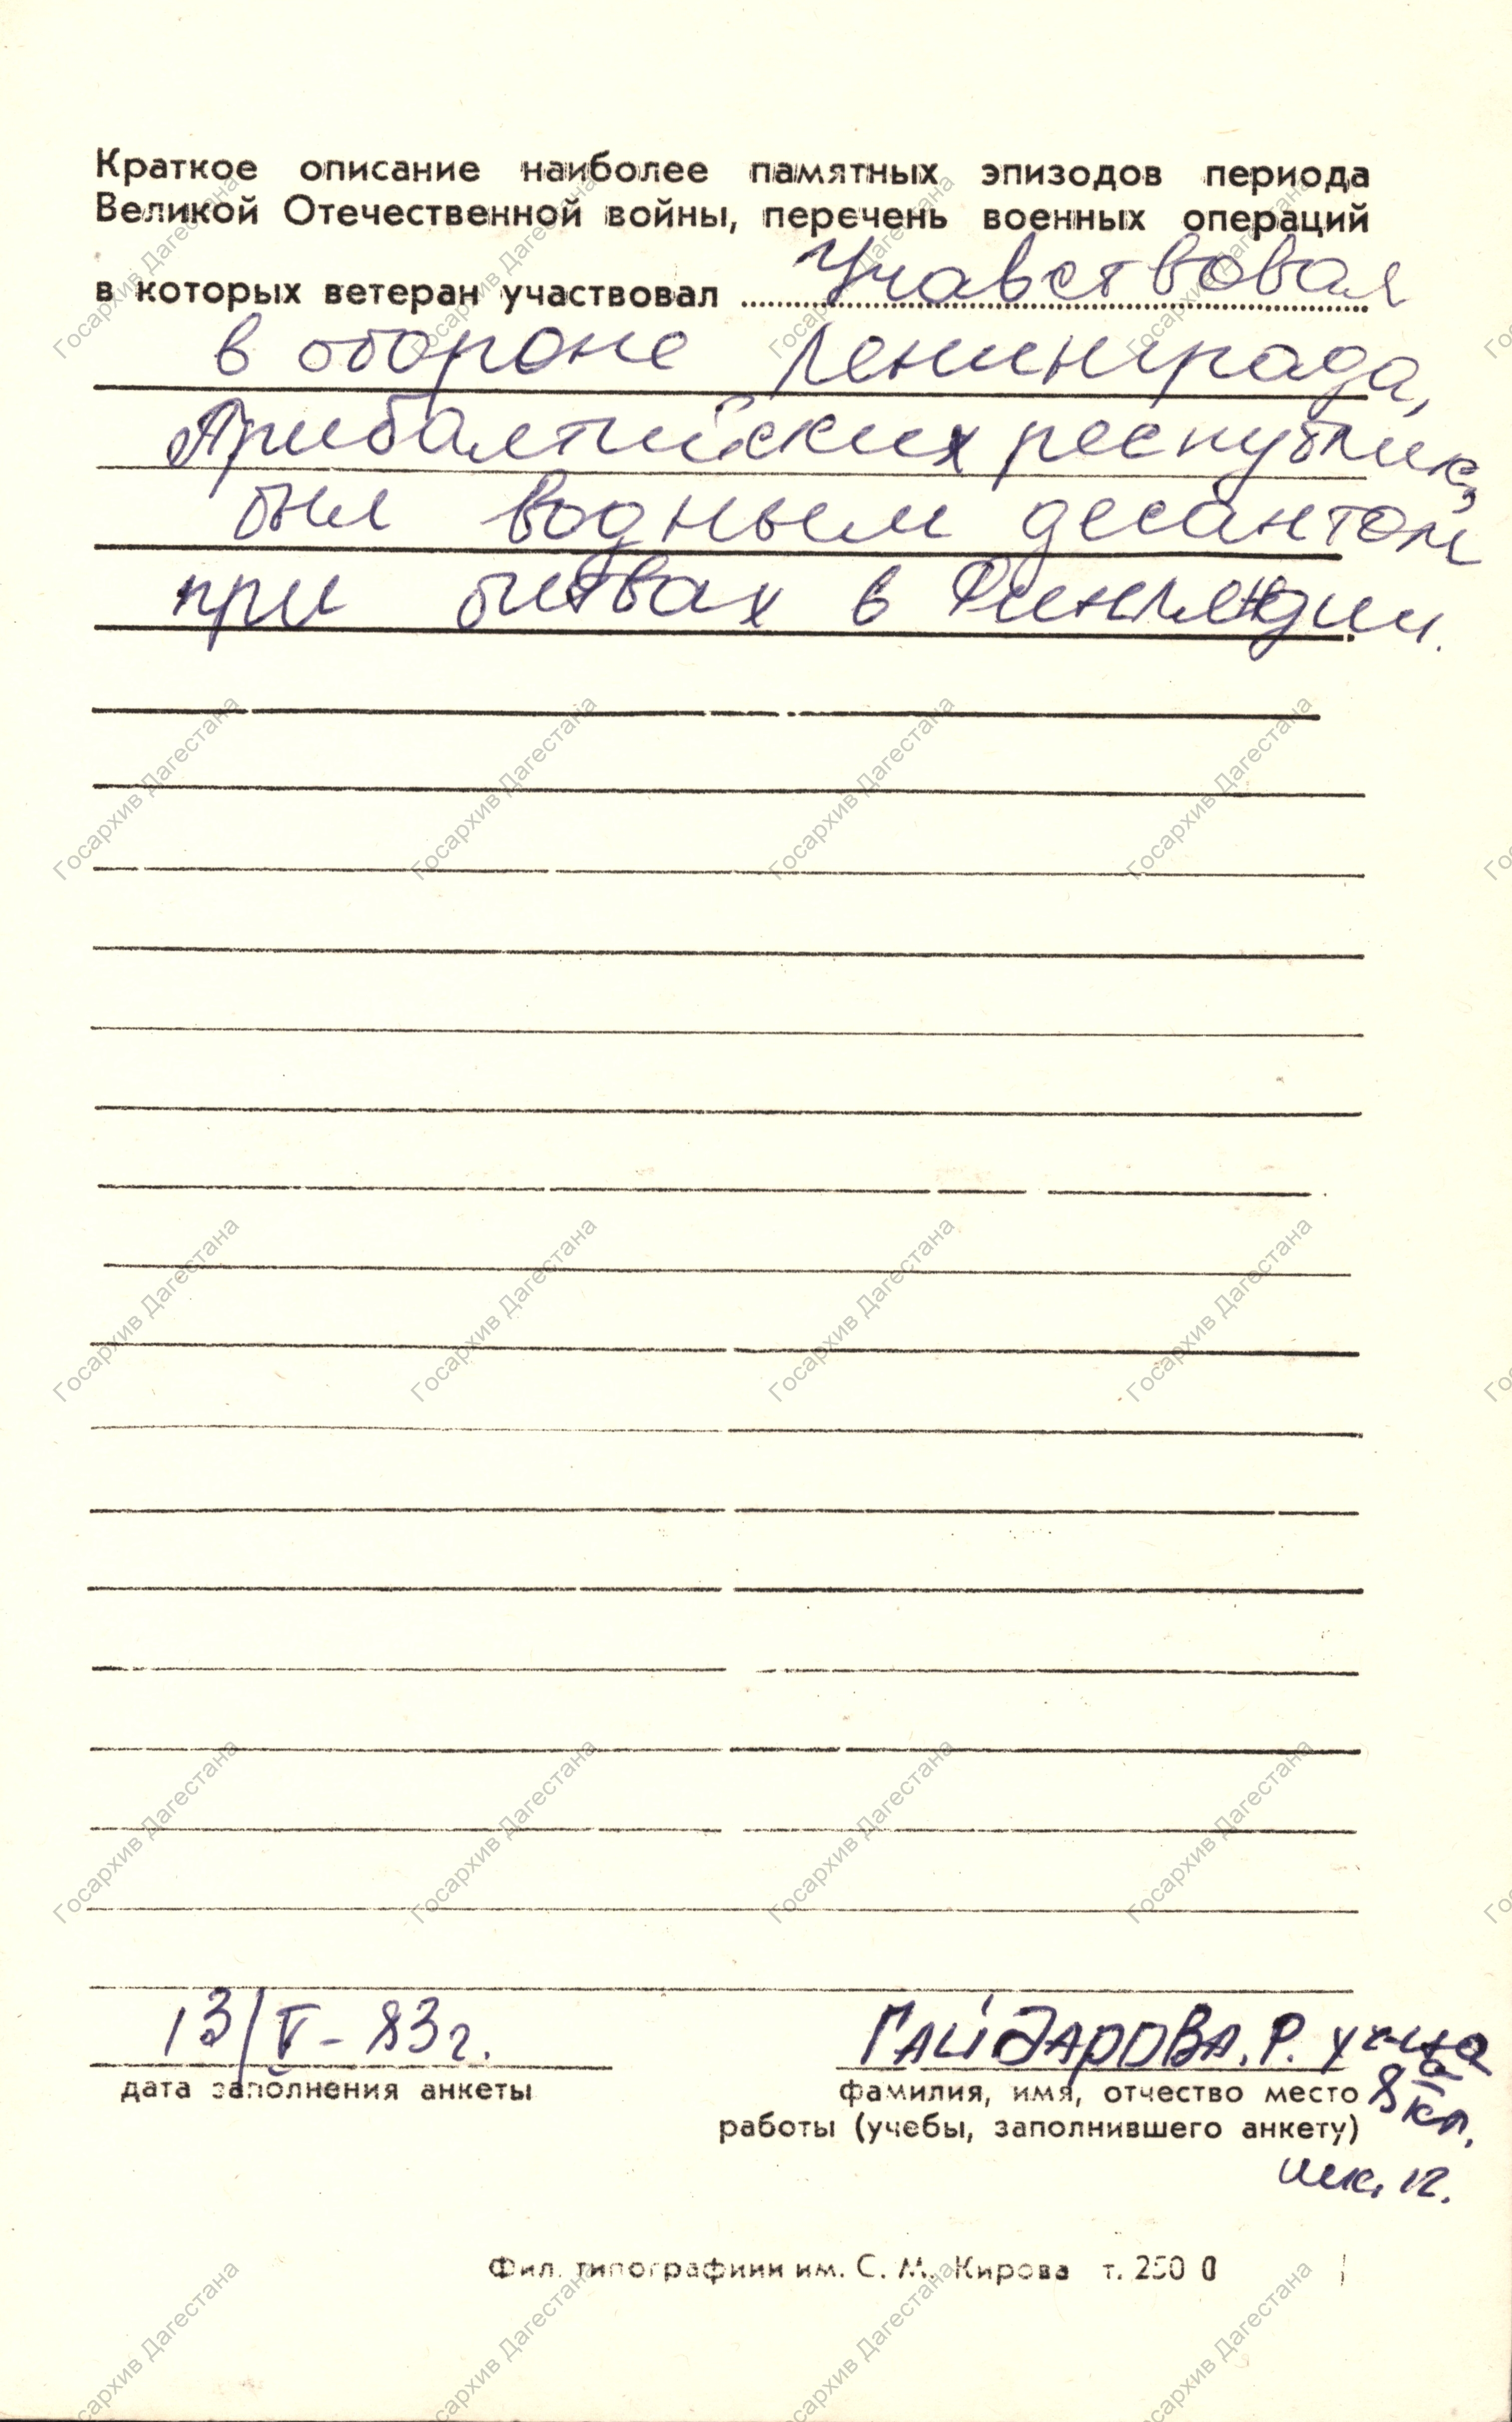 Краткое описание наиболее памятных эпизодов периода
Великой Отечественной войны, перечень военных операций
в которых ветеран участвовал Учавствовал
в обороне Ленинграда,
Прибалтийских республик,
был водным десантом
при битвах в Финляндии.
13/V-83г.
дата заполнения анкеты
ГАЙДАРОВА. Р. уч-ца
8а кл.
шк. 12.
фамилия, имя, отчество место
работы (учебы, заполнившего анкету)
Фил. типографиии им. С. М. Кирова т. 250 0
Госархив Дагестана